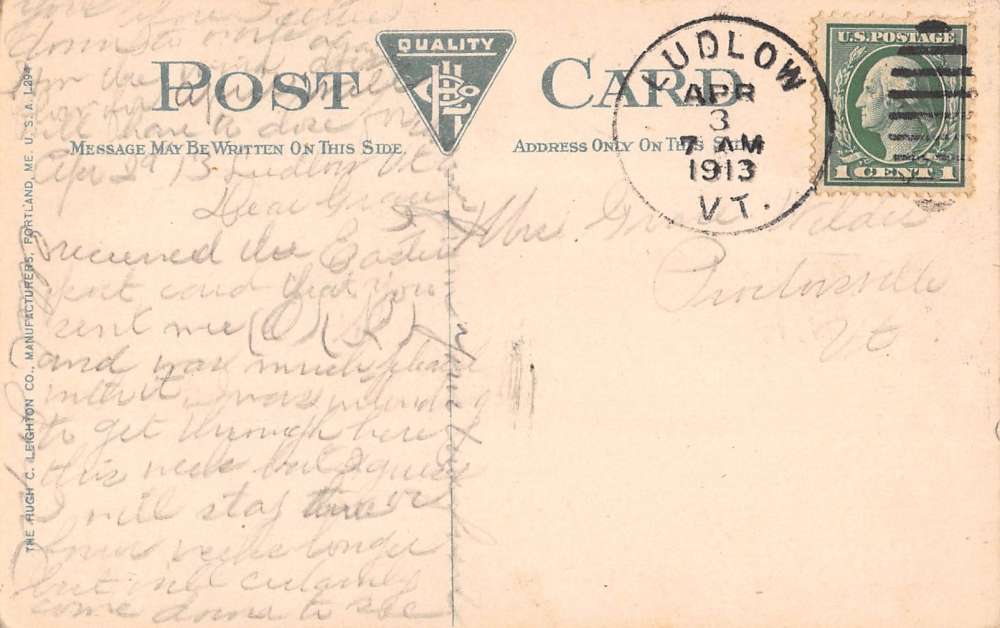 you before I
down to work
POST CARD
QUALITY
H C L Co
MESSAGE MAY BE WRITTEN ON THIS SIDE.
ADDRESS ONLY ON THIS SIDE.
LUDLOW
APR
3
7 AM
1913
VT.
U.S. POSTAGE
1 CENT 1
THE HUGH C. LEIGHTON CO., MANUFACTURERS, PORTLAND, ME. U.S.A.
will have to close for
Apr 2nd 13 Ludlow Vt
Dear
I received the Easter
post card that you
sent me
and was much pleased
with it. I was intending
to get through here
this week but I guess
I will stay three or
four weeks longer
but will certainly
come down to see
Mrs
Proctorsville
Vt